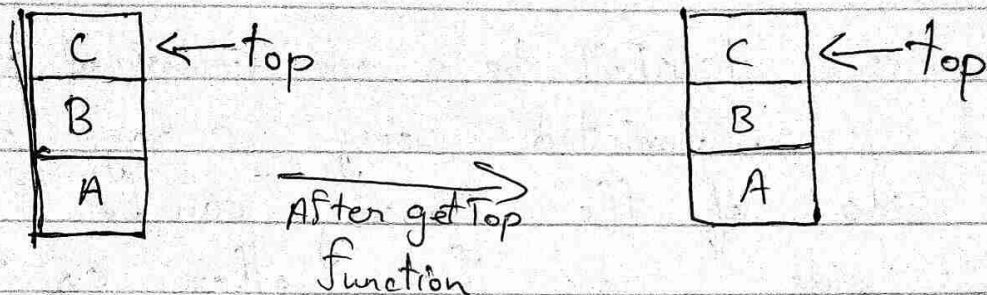 C ← top
B
A
After getTop
function
C ← top
B
A